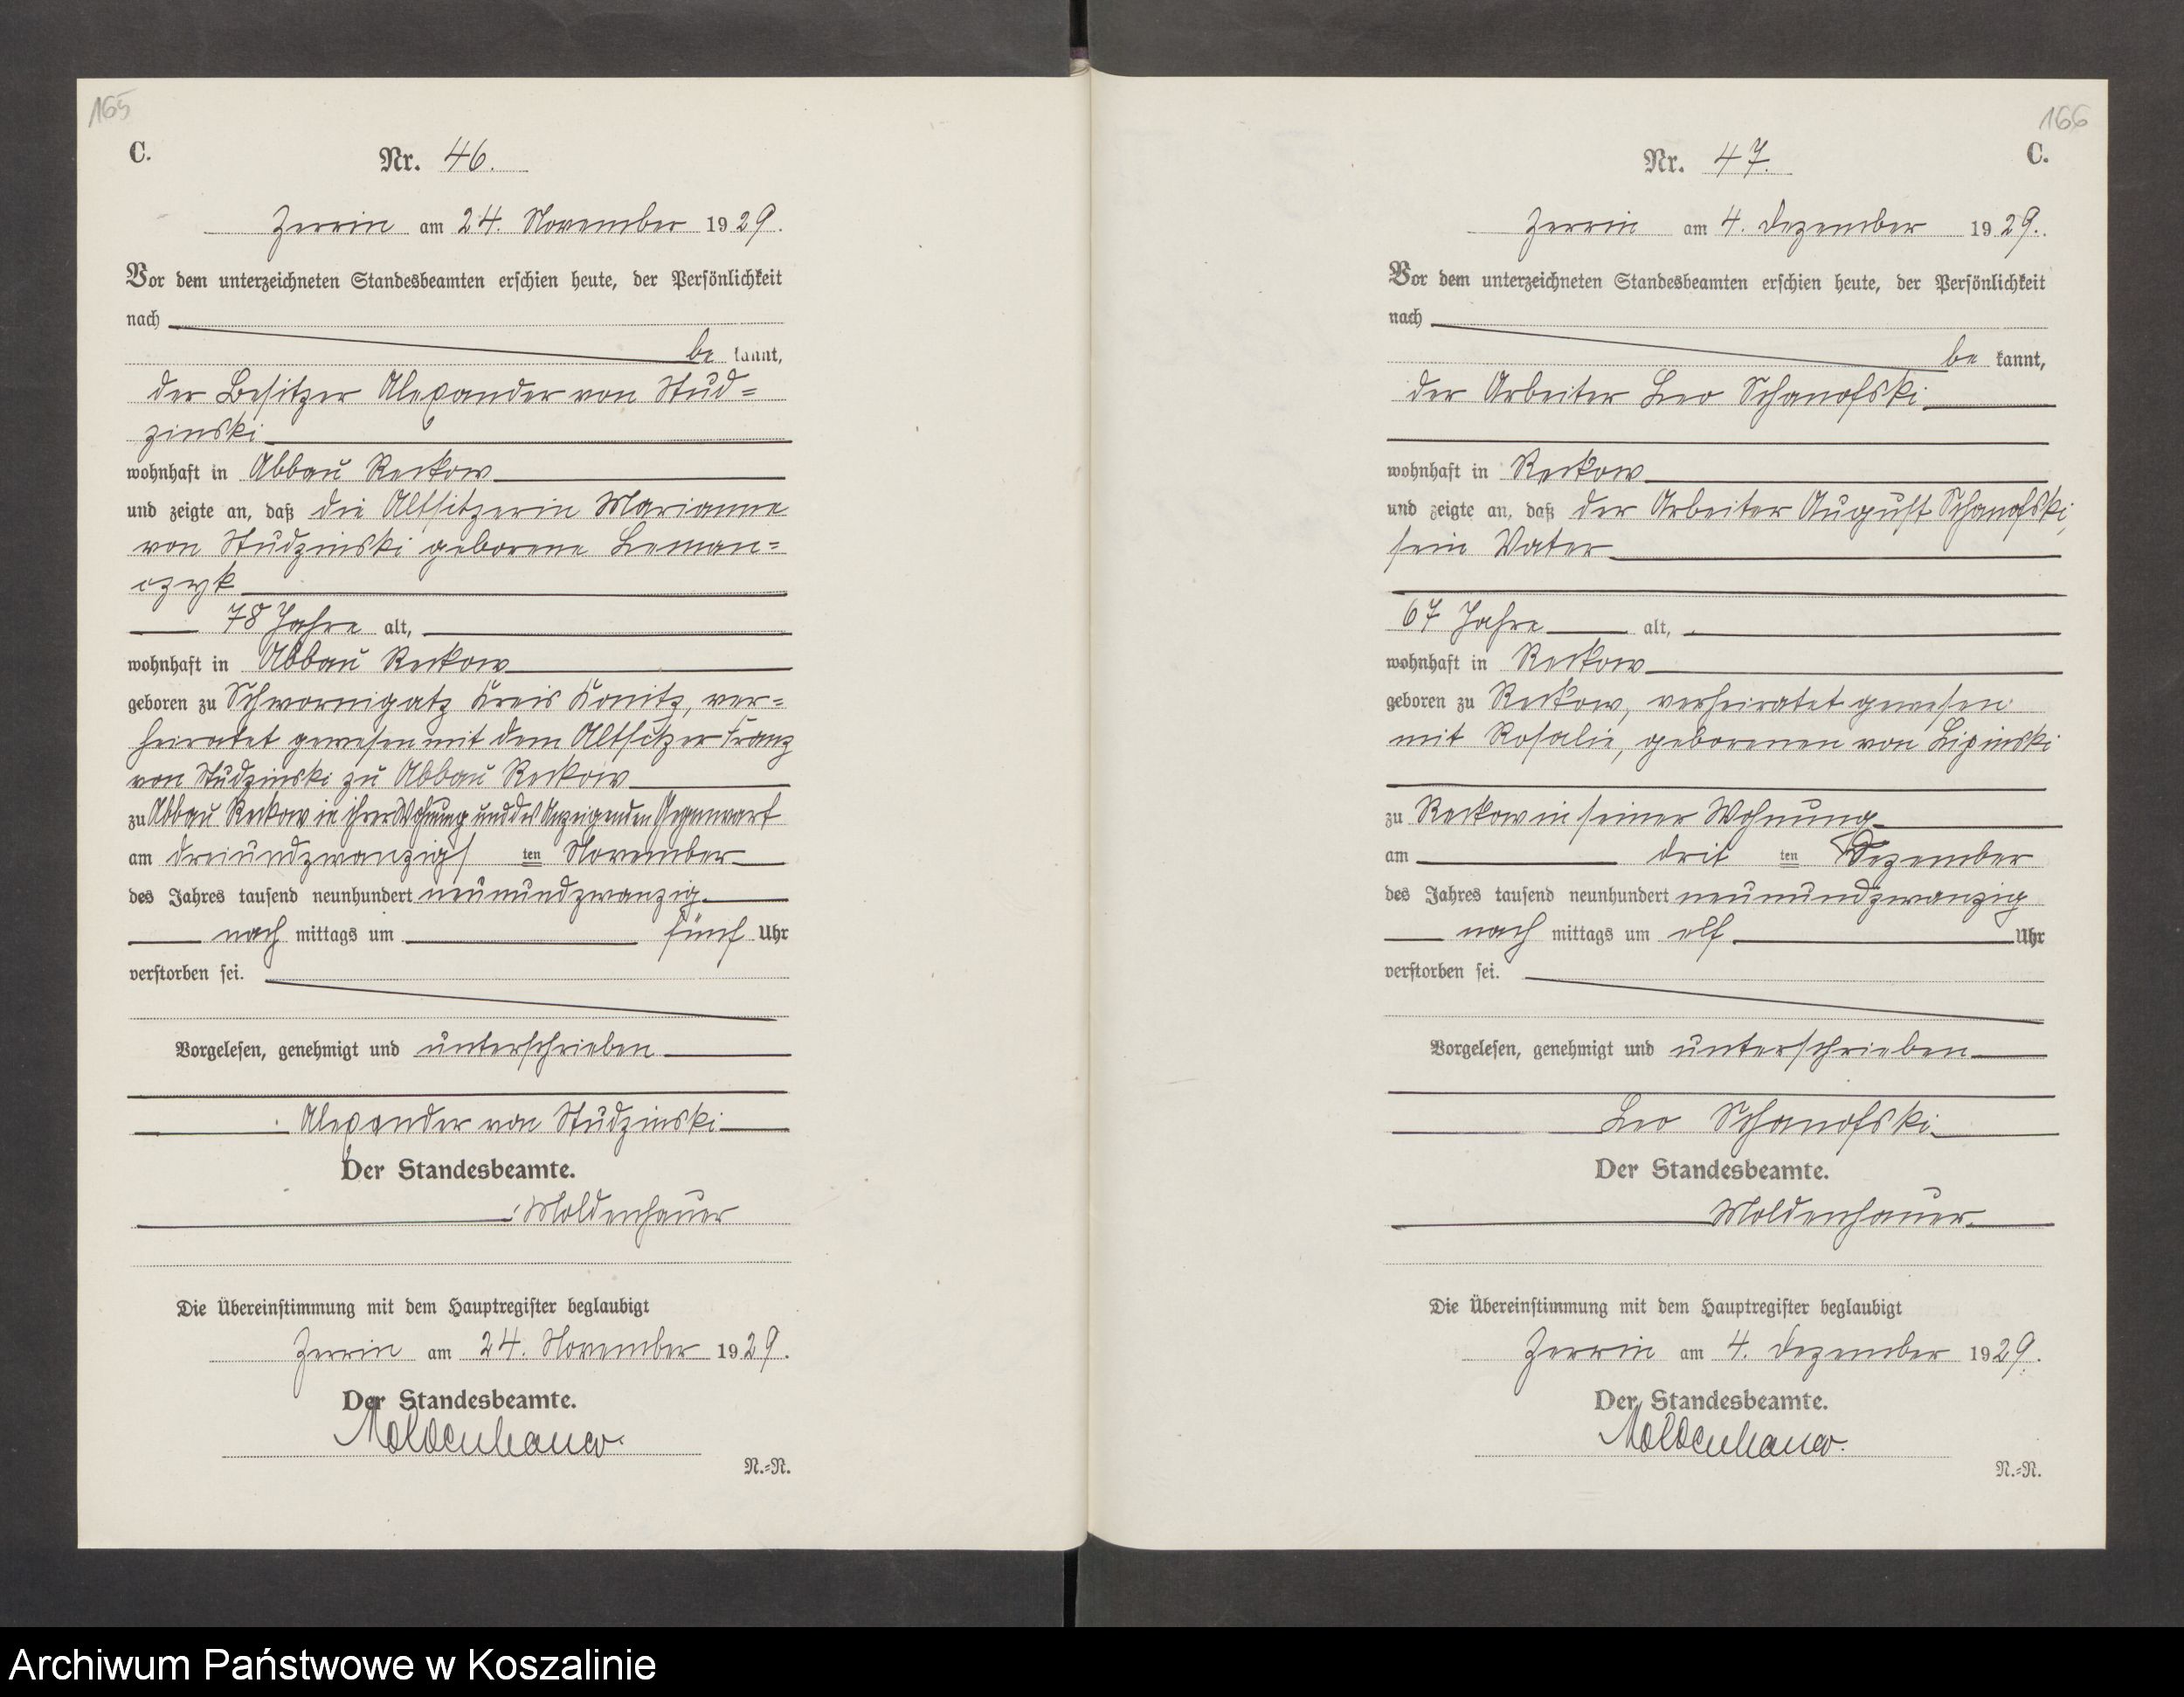 165
C.
Nr. 46.
Zerrin am 24. November 1929.
Vor dem unterzeichneten Standesbeamten erschien heute, der Persönlichkeit
nach
be kannt,
der Besitzer Alexander von Stud=
zinski
wohnhaft in Abbau Reckow
und zeigte an, daß die Altsitzerin Marianna
von Studzinski geborene Leman=
czyk
78 Jahre alt,
wohnhaft in Abbau Reckow
geboren zu Schwornigatz Kreis Konitz, ver=
heiratet gewesen mit dem Altsitzer Franz
von Studzinski zu Abbau Reckow
zu Abbau Reckow in ihrer Wohnung und des Anzeigenden Gegenwart
am dreiundzwanzigs ten November
des Jahres tausend neunhundert neunundzwanzig
nach mittags um fünf Uhr
verstorben sei.
Vorgelesen, genehmigt und unterschrieben
Alexander von Studzinski
Der Standesbeamte.
Moldenhauer
Die Übereinstimmung mit dem Hauptregister beglaubigt
Zerrin am 24. November 1929.
Der Standesbeamte.
Moldenhauer.
N.=N.
166
C.
Nr. 47.
Zerrin am 4. Dezember 1929.
Vor dem unterzeichneten Standesbeamten erschien heute, der Persönlichkeit
nach
be kannt,
der Arbeiter Leo Schanofski
wohnhaft in Reckow
und zeigte an, daß der Arbeiter August Schanofski,
sein Vater
67 Jahre alt,
wohnhaft in Reckow
geboren zu Reckow, verheiratet gewesen
mit Rosalie, geborenen von Lipinski
zu Reckow in seiner Wohnung
am drit ten Dezember
des Jahres tausend neunhundert neunundzwanzig
nach mittags um elf Uhr
verstorben sei.
Vorgelesen, genehmigt und unterschrieben
Leo Schanofski
Der Standesbeamte.
Moldenhauer.
Die Übereinstimmung mit dem Hauptregister beglaubigt
Zerrin am 4. Dezember 1929.
Der Standesbeamte.
Moldenhauer.
N.=N.
Archiwum Państwowe w Koszalinie